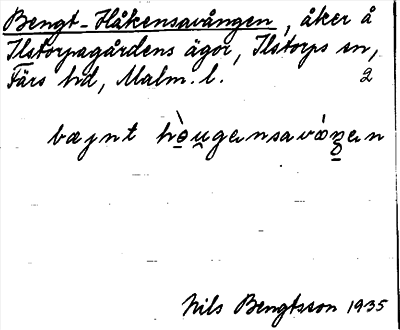 Bengt-Håkensavången, åker å
Ilstorpagårdens ägor, Ilstorps sn,
Färs hd, Malm. l. 2
bæŋnt hò̱u̯gənsavåŋən
Nils Bengtsson 1935